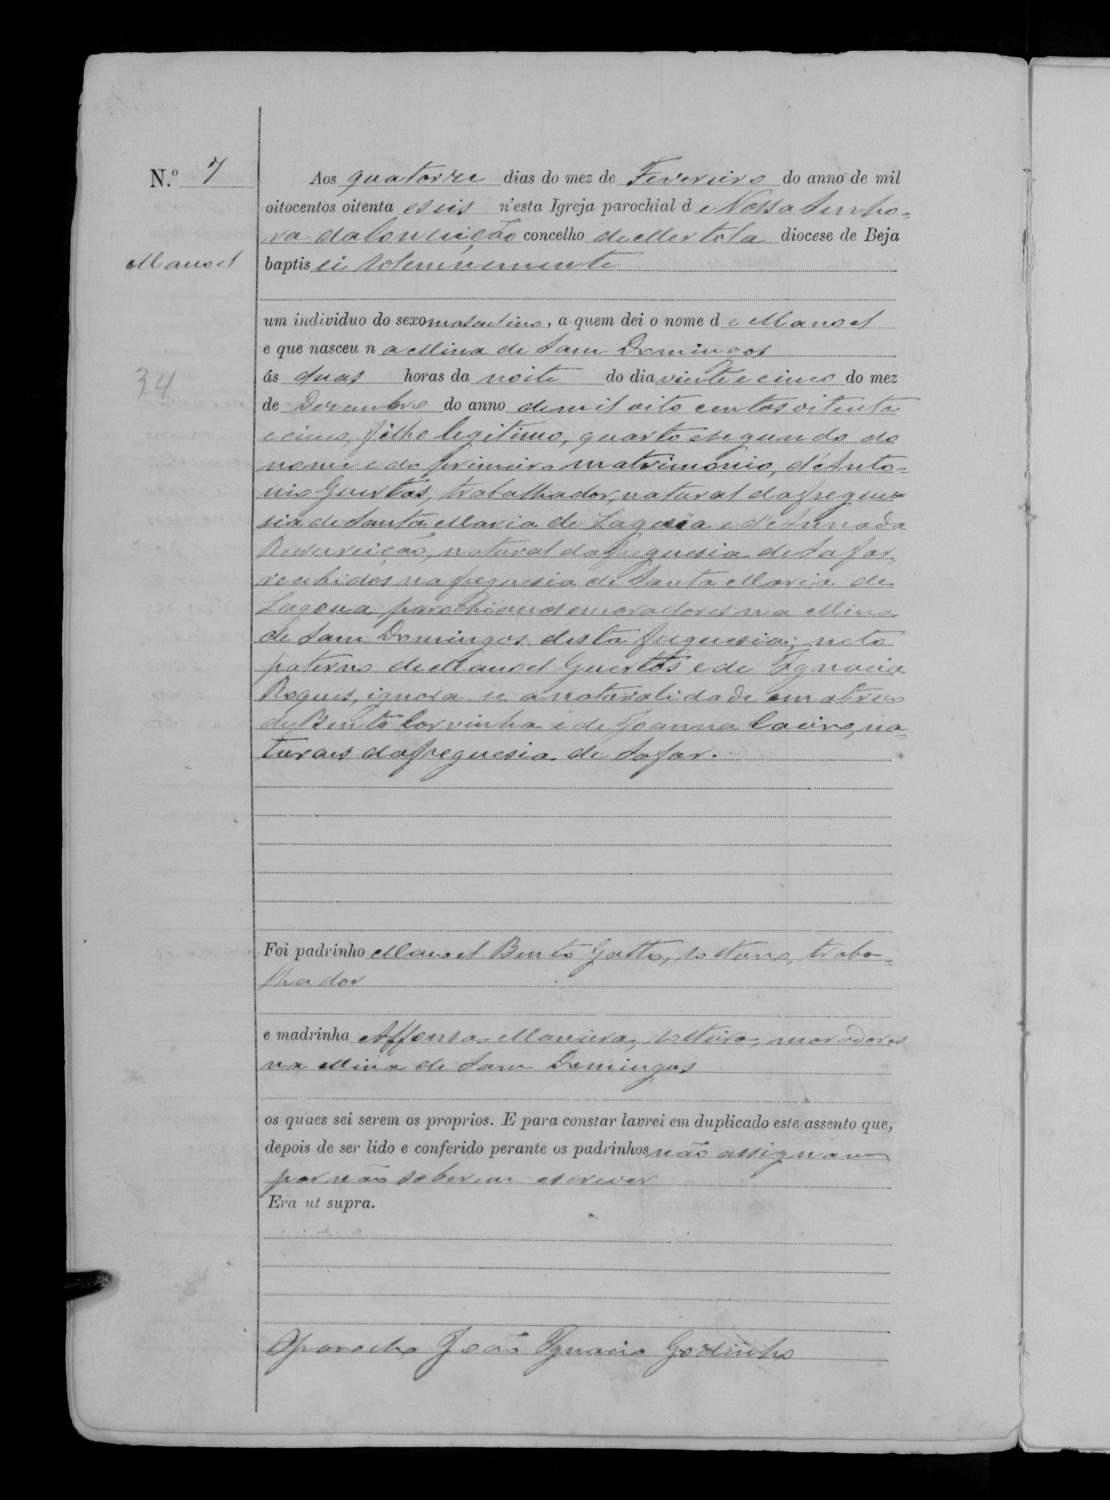 N.º 7
Aos quatorze dias do mez de Fevereiro do anno de mil
oitocentos oitenta e seis n'esta Igreja parochial d e Nossa Senho-
ra da Conceição concelho de Mertola diocese de Beja
Manoel
baptis ei solemnemente
um individuo do sexo masculino, a quem dei o nome d e Manoel
e que nasceu n a Mina de Sam Domingos
34
ás duas horas da noite do dia vinte e cinco do mez
de Dezembro do anno de mil oito centos oitenta
e cinco, filho legitimo, quarto e segundo do
nome e do primeiro matrimonio, d'Anto-
nio Guertas, trabalhador, natural da fregue-
sia de Santa Maria de Lagoaia e d'Anna da
Resureição, natural da freguesia de Safar,
recebidos na freguesia de Santa Maria de
Lagoua parochianos e moradores na Mina
de Sam Domingos desta freguesia; neto
paterno de Manoel Guertas e de Ignacia
Roques, ignora se a naturalidade e materno
de Bento Corvinha e de Joanna na-
turaes da freguesia de Safar.
Foi padrinho Manoel Bento Gatto, solteiro, traba-
lhador
e madrinha Affonsa Maneira, solteira, moradores
na Mina de Sam Domingos
os quaes sei serem os proprios. E para constar lavrei em duplicado este assento que,
depois de ser lido e conferido perante os padrinhos não assignam
por não saberem escrever
Era ut supra.
O parocho João Ignacio Godinho